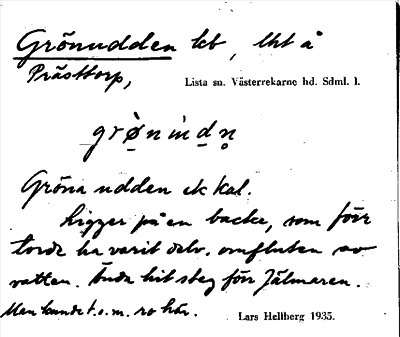 Grönudden lct, lht å
Prästtorp,
Lista sn. Västerrekarne hd. Sdml. l.
Gröna udden ek kal.
Ligger på en backe, som förr
torde ha varit delv. omfluten av
vatten. Ända hit steg förr Jälmaren.
Man kunde t.o.m. ro här.
Lars Hellberg 1935.